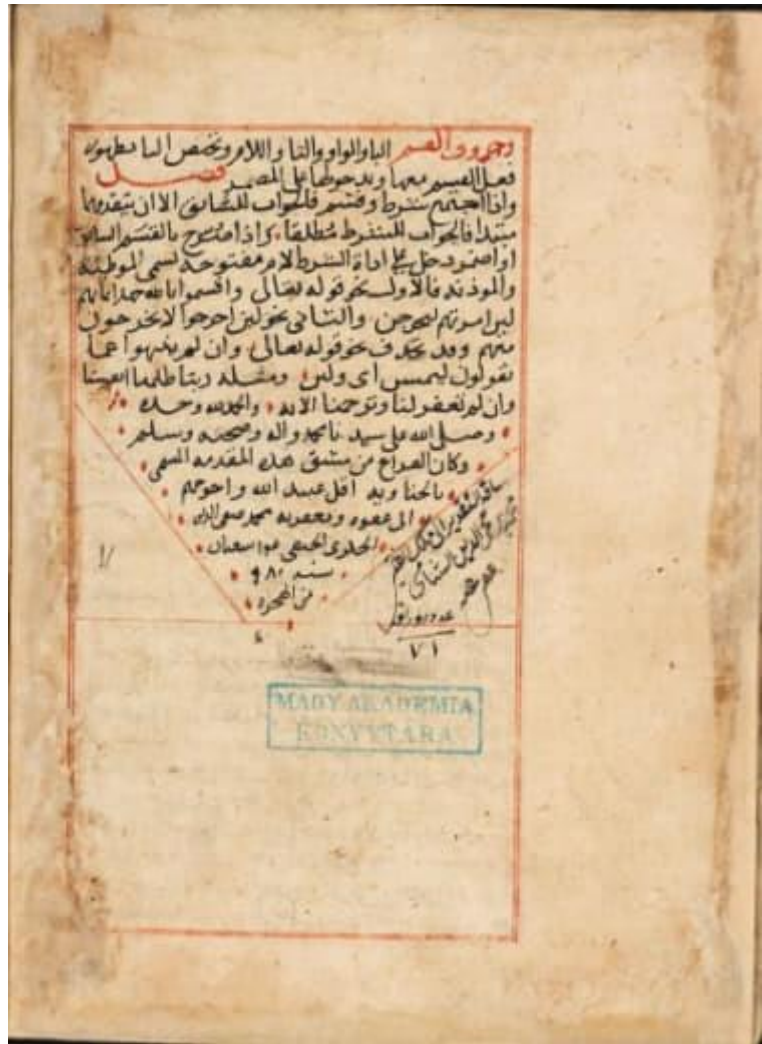 وحروف القسم الباء والواو والتا واللام وتختص البا بظهور
فعل القسم معها وبدخولها على المضمر فصل
واذا اجتمع شرط وقسم فالجواب للسابق الا ان يتقدمهما
مبتدا فالجواب للشرط مطلقا واذا صرح بالقسم السابق
او اضمر دخل على اداة الشرط لام مفتوحة تسمى الموطئة
والموذنة فالاول نحو قوله تعالى واقسموا بالله جهد ايمانهم
لين امرتهم ليخرجن والثانى نحو لين اخرجوا لا يخرجون
معهم وقد تحذف نحو قوله تعالى وان لم ينتهوا عما
يقولون ليمسن اى ولين ومثله ربنا ظلمنا انفسنا
وان لم تغفر لنا وترحمنا الاية والحمد لله وحده
وصلى الله على سيدنا محمد واله وصحبه وسلم
وكان الفراغ من مشق هذه المقدمة
اقل عبيد الله واحوجهم
الى عفوه محمد
الحنفى
سنه ٩٨٠
من الهجرة
٧١
MAGY. AKADEMIA
KÖNYVTARA